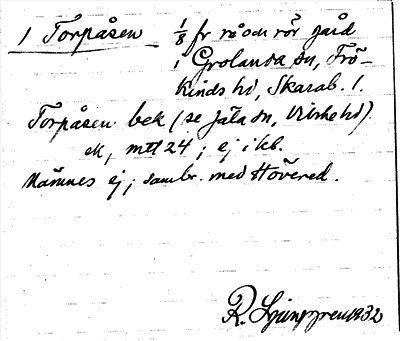 1 Torpåsen 1/8 fr rå och rör gård
i Grolanda sn, Frö-
kinds hd, Skarab. l.
Torpåsen bek (se Jäla sn, Vilske hd).
ek, mtl 24; ej i kb.
Nämnes ej; sambr. med Hövered.
R. Ljunggren 1932